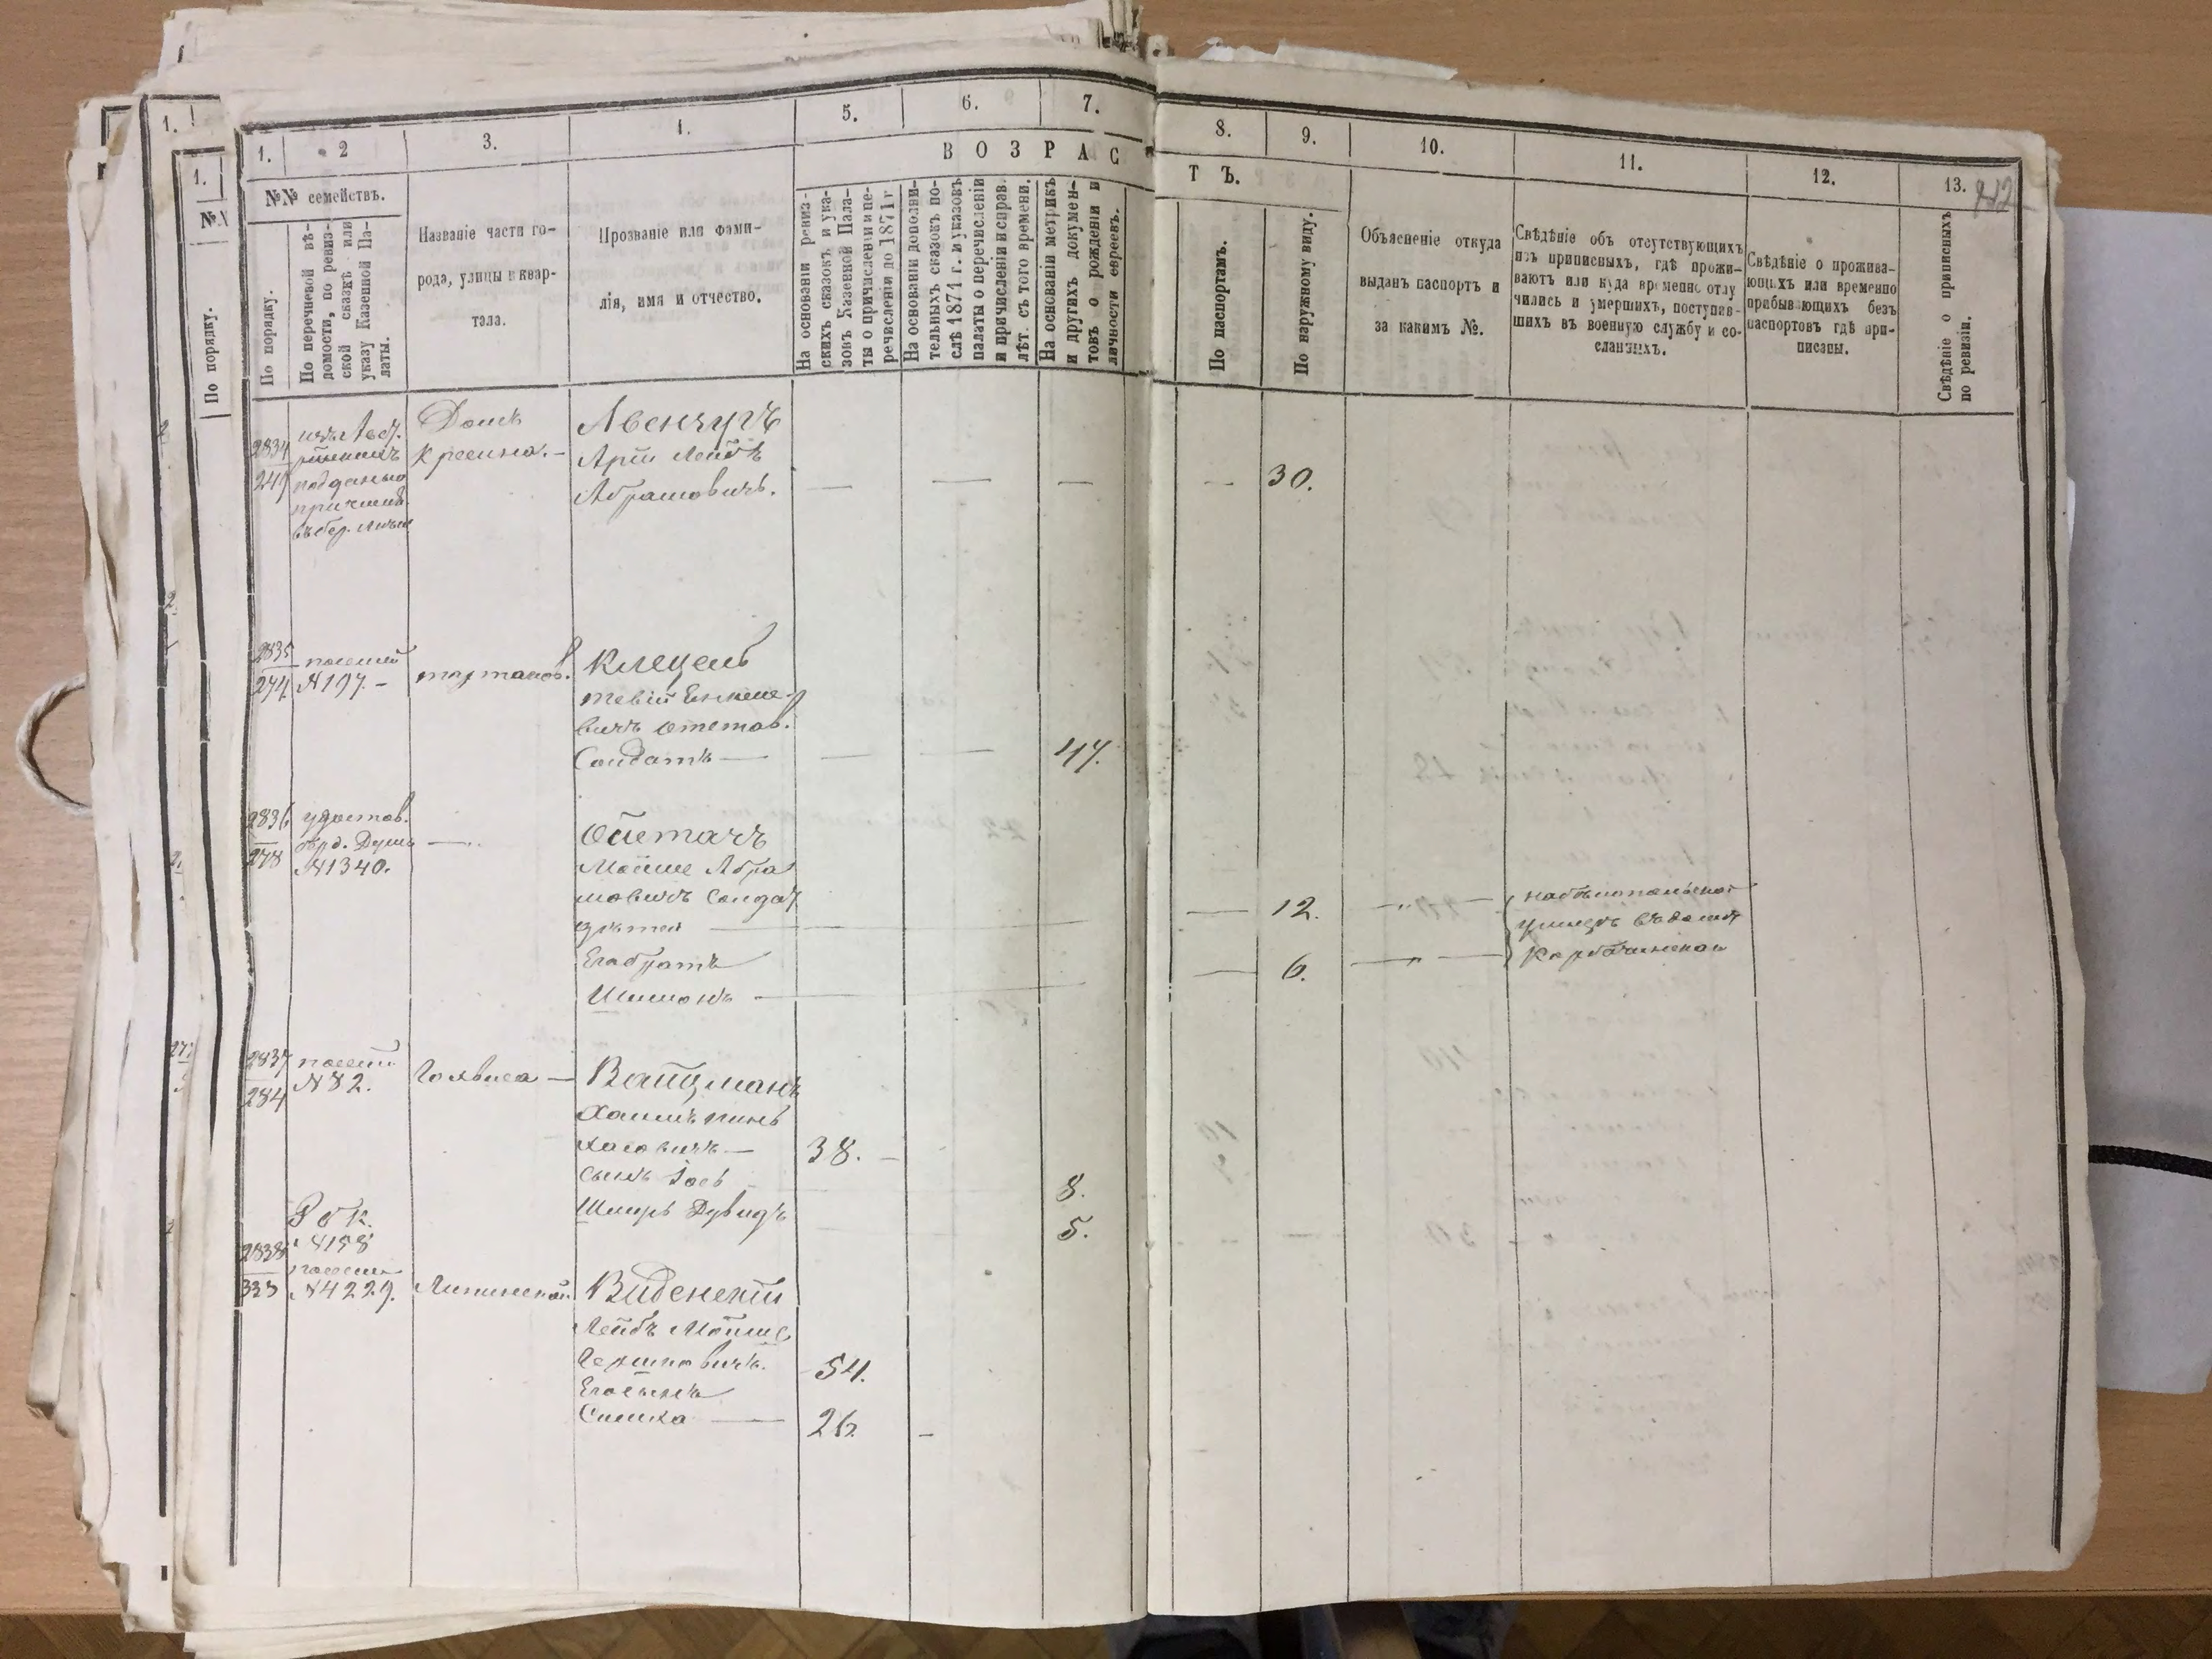 1.
1.
№
По порядку.
1.
2
3.
4.
5.
6.
7.
8.
9.
10.
11.
12.
13.
ВОЗРАС
ТЪ.
№№ семействъ.
По порядку.
По перечневой вѣ-
домости, по ревиз-
ской сказкѣ или
указу Казенной Па-
латы.
Названіе части го-
рода, улицы и квар-
тала.
Прозваніе или фами-
лія, имя и отчество.
На основаніи ревиз-
скихъ сказокъ и ука-
зовъ Казенной Пала-
ты о причисленіи и пе-
речисленіи до 1871 г
На основаніи дополни-
тельныхъ сказокъ по-
слѣ 1871 г. и указовъ
палаты о перечисленіи
и причисленіи и справ.
лѣт. съ того времени.
На основаніи метрикъ
и другихъ докумен-
товъ о рожденіи и
личности евреевъ.
По паспортамъ.
По наружному виду.
Объясненіе откуда
выданъ паспортъ и
за какимъ №.
Свѣдѣніе объ отсутствующихъ
изъ приписныхъ, гдѣ прожи-
ваютъ или куда временно отлу
чились и умершихъ, поступав-
шихъ въ военную службу и со-
сланныхъ.
Свѣдѣніе о прожива-
ющихъ или временно
прибывающихъ безъ
паспортовъ гдѣ при-
писаны.
Свѣдѣніе о приписныхъ
по ревизіи.
2834
249
подданыхъ
Домъ
Авенчугъ
Арій Лейбъ
Абрамовичъ.
30.
2835
274
№197.
Клецель
Тевій
вичъ отстав.
Солдатъ
47.
2836
278
удостов.
Думы
№1340.
Ойстачъ
Мойше Абра
мовичъ Солдат
дѣтей
12.
Его братъ
6.
Шимонъ
2837
284
№82.
Вайцманъ
Хаимъ
38.
Сынъ Іосъ
8.
Шмиръ Дувидъ
5.
2838
335
№158
№4229.
Виденскій
Лейбъ Мойше
54.
Его сынъ
Симха
26